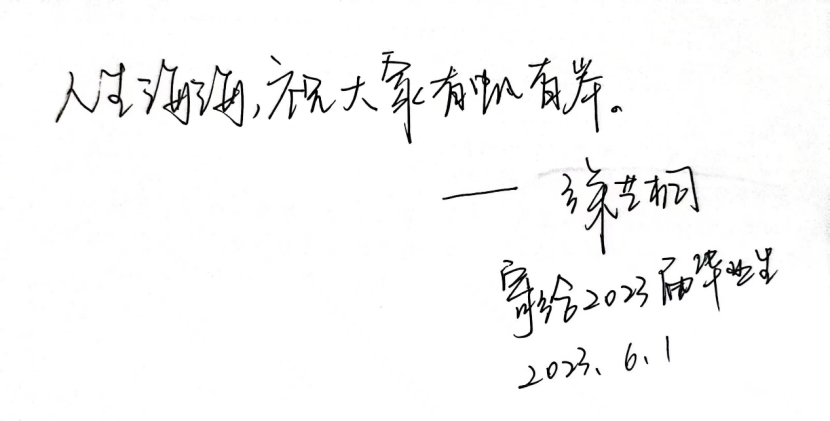 人生海海,祝大家有帆有岸。
—— 徐芸桐
寄给2023届毕业生
2023.6.1